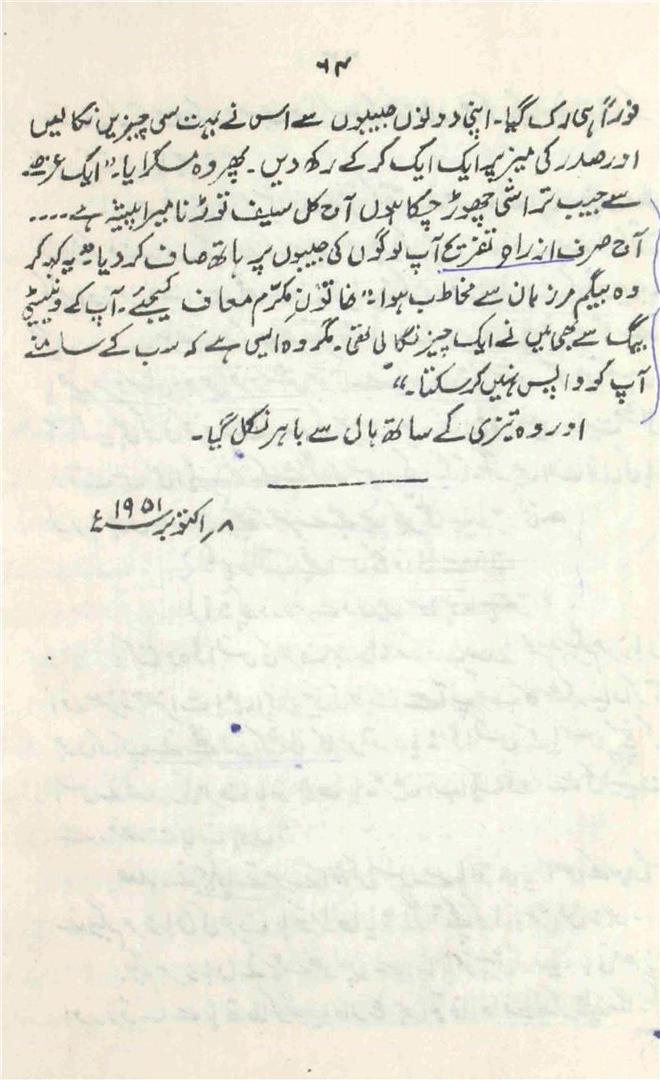 ۶۴
فوراً ہی رک گیا۔ اپنی دونوں جیبوں سے اس نے بہت سی چیزیں نکالیں
اور صدر کی میز پر ایک ایک کر کے رکھ دیں۔ پھر وہ مسکرایا۔ "ایک عرصہ
سے جیب تراشی چھوڑ چکا ہوں آج کل سیف توڑنا میرا پیشہ ہے ....
آج صرف از راہِ تفریح آپ لوگوں کی جیبوں پر ہاتھ صاف کر دیا" یہ کہہ کر
وہ بیگم مرزبان سے مخاطب ہوا۔ "خاتونِ مکرّم معاف کیجئے۔ آپ کے ونیٹی
بیگ سے بھی میں نے ایک چیز نکالی تھی۔ مگر وہ ایسی ہے کہ سب کے سامنے
آپ کو واپس نہیں کر سکتا۔"
اور وہ تیزی کے ساتھ ہال سے باہر نکل گیا۔
۸؍ اکتوبر ۱۹۵۱ء